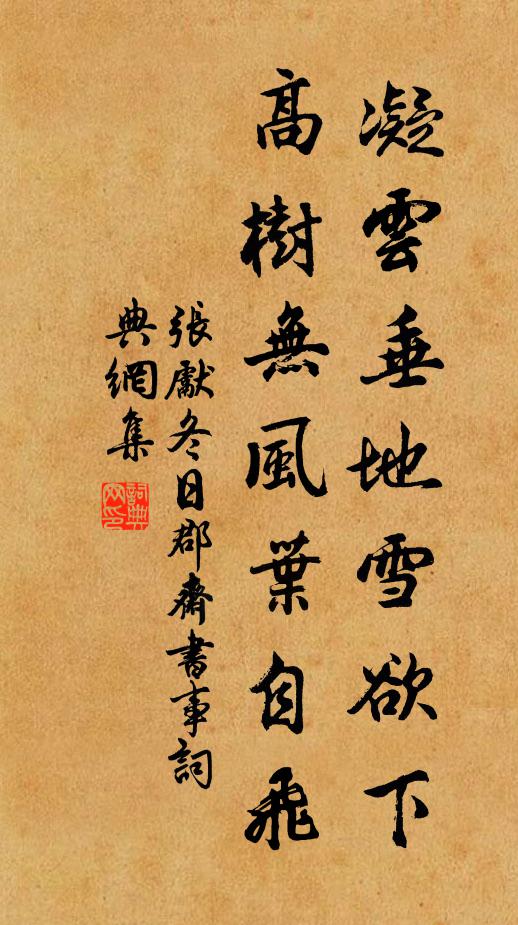 凝雲垂地雪欲下
高樹無風葉自飛
張獻冬日郡齋書事詞
典網集
詞典
网印